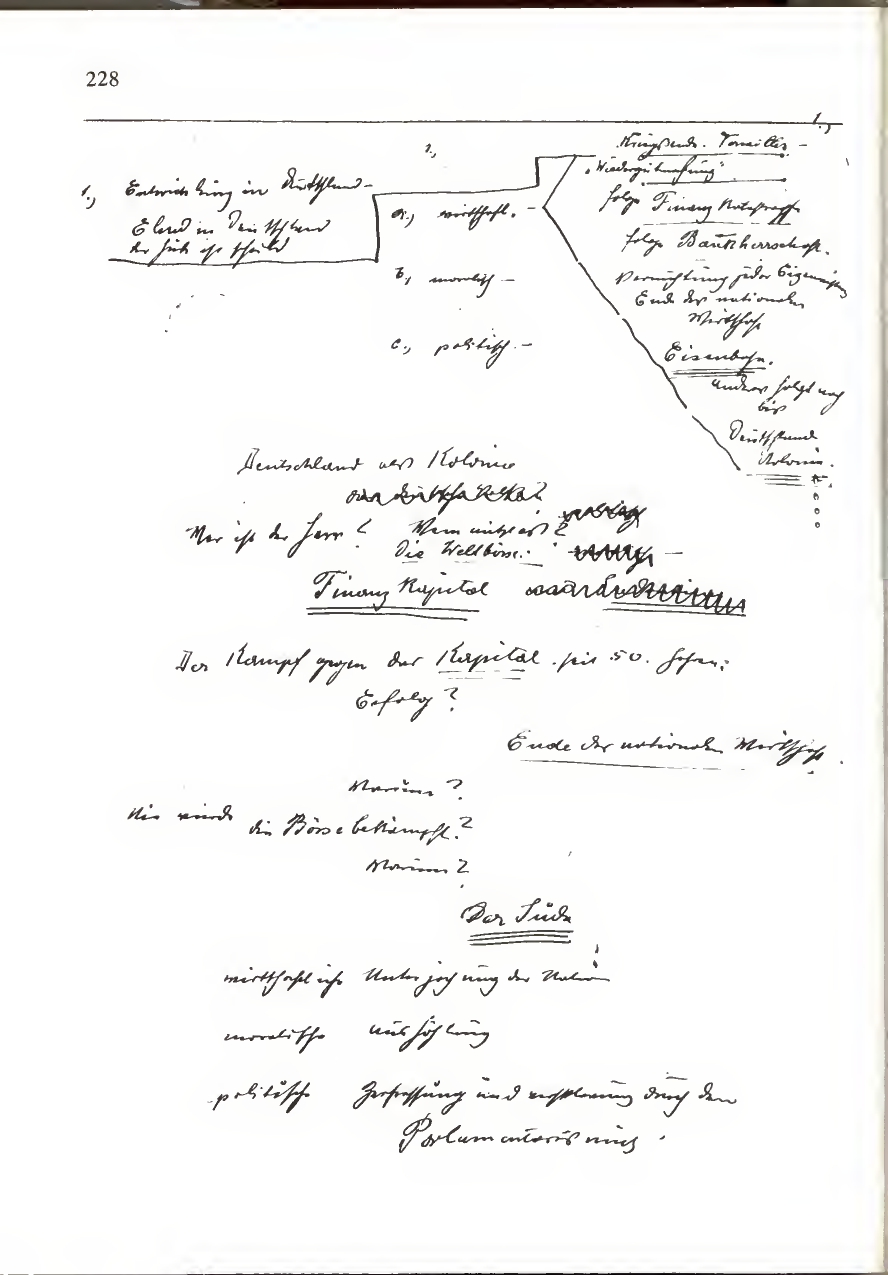 228
1.,
1.,
1., Entwicklung in Deutschland –
Elend in Deutschland
der Jude ist schuld
a., wirtschaftl. –
b., moralisch –
c., politisch. –
Kriegsende. Versailles –
„Wiedergutmachung"
folge Finanz
folge Bankherrschaft.
Vernichtung jeder
Ende der nationalen
Wirtschaft
Eisenbahn.
anderes folgt nach
bis
Deutschland
Kolonie.
Deutschland als Kolonie
Wer ist der Herr?
Die Weltbörse.
Finanz Kapital
Der Kampf gegen das Kapital seit 50. Jahren:
Erfolg?
Ende der nationalen Wirtschaft.
Warum?
Nie wurde die Börse bekämpft?
Warum?
Der Jude
wirtschaftliche Unterjochung der Nation
moralische aushöhlung
politische Zersetzung und durch den
Parlamentarismus.